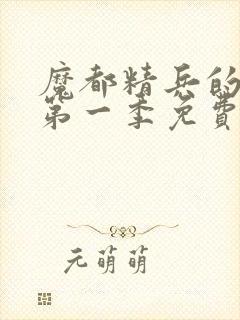 魔都精兵的
第一季免費
元萌萌